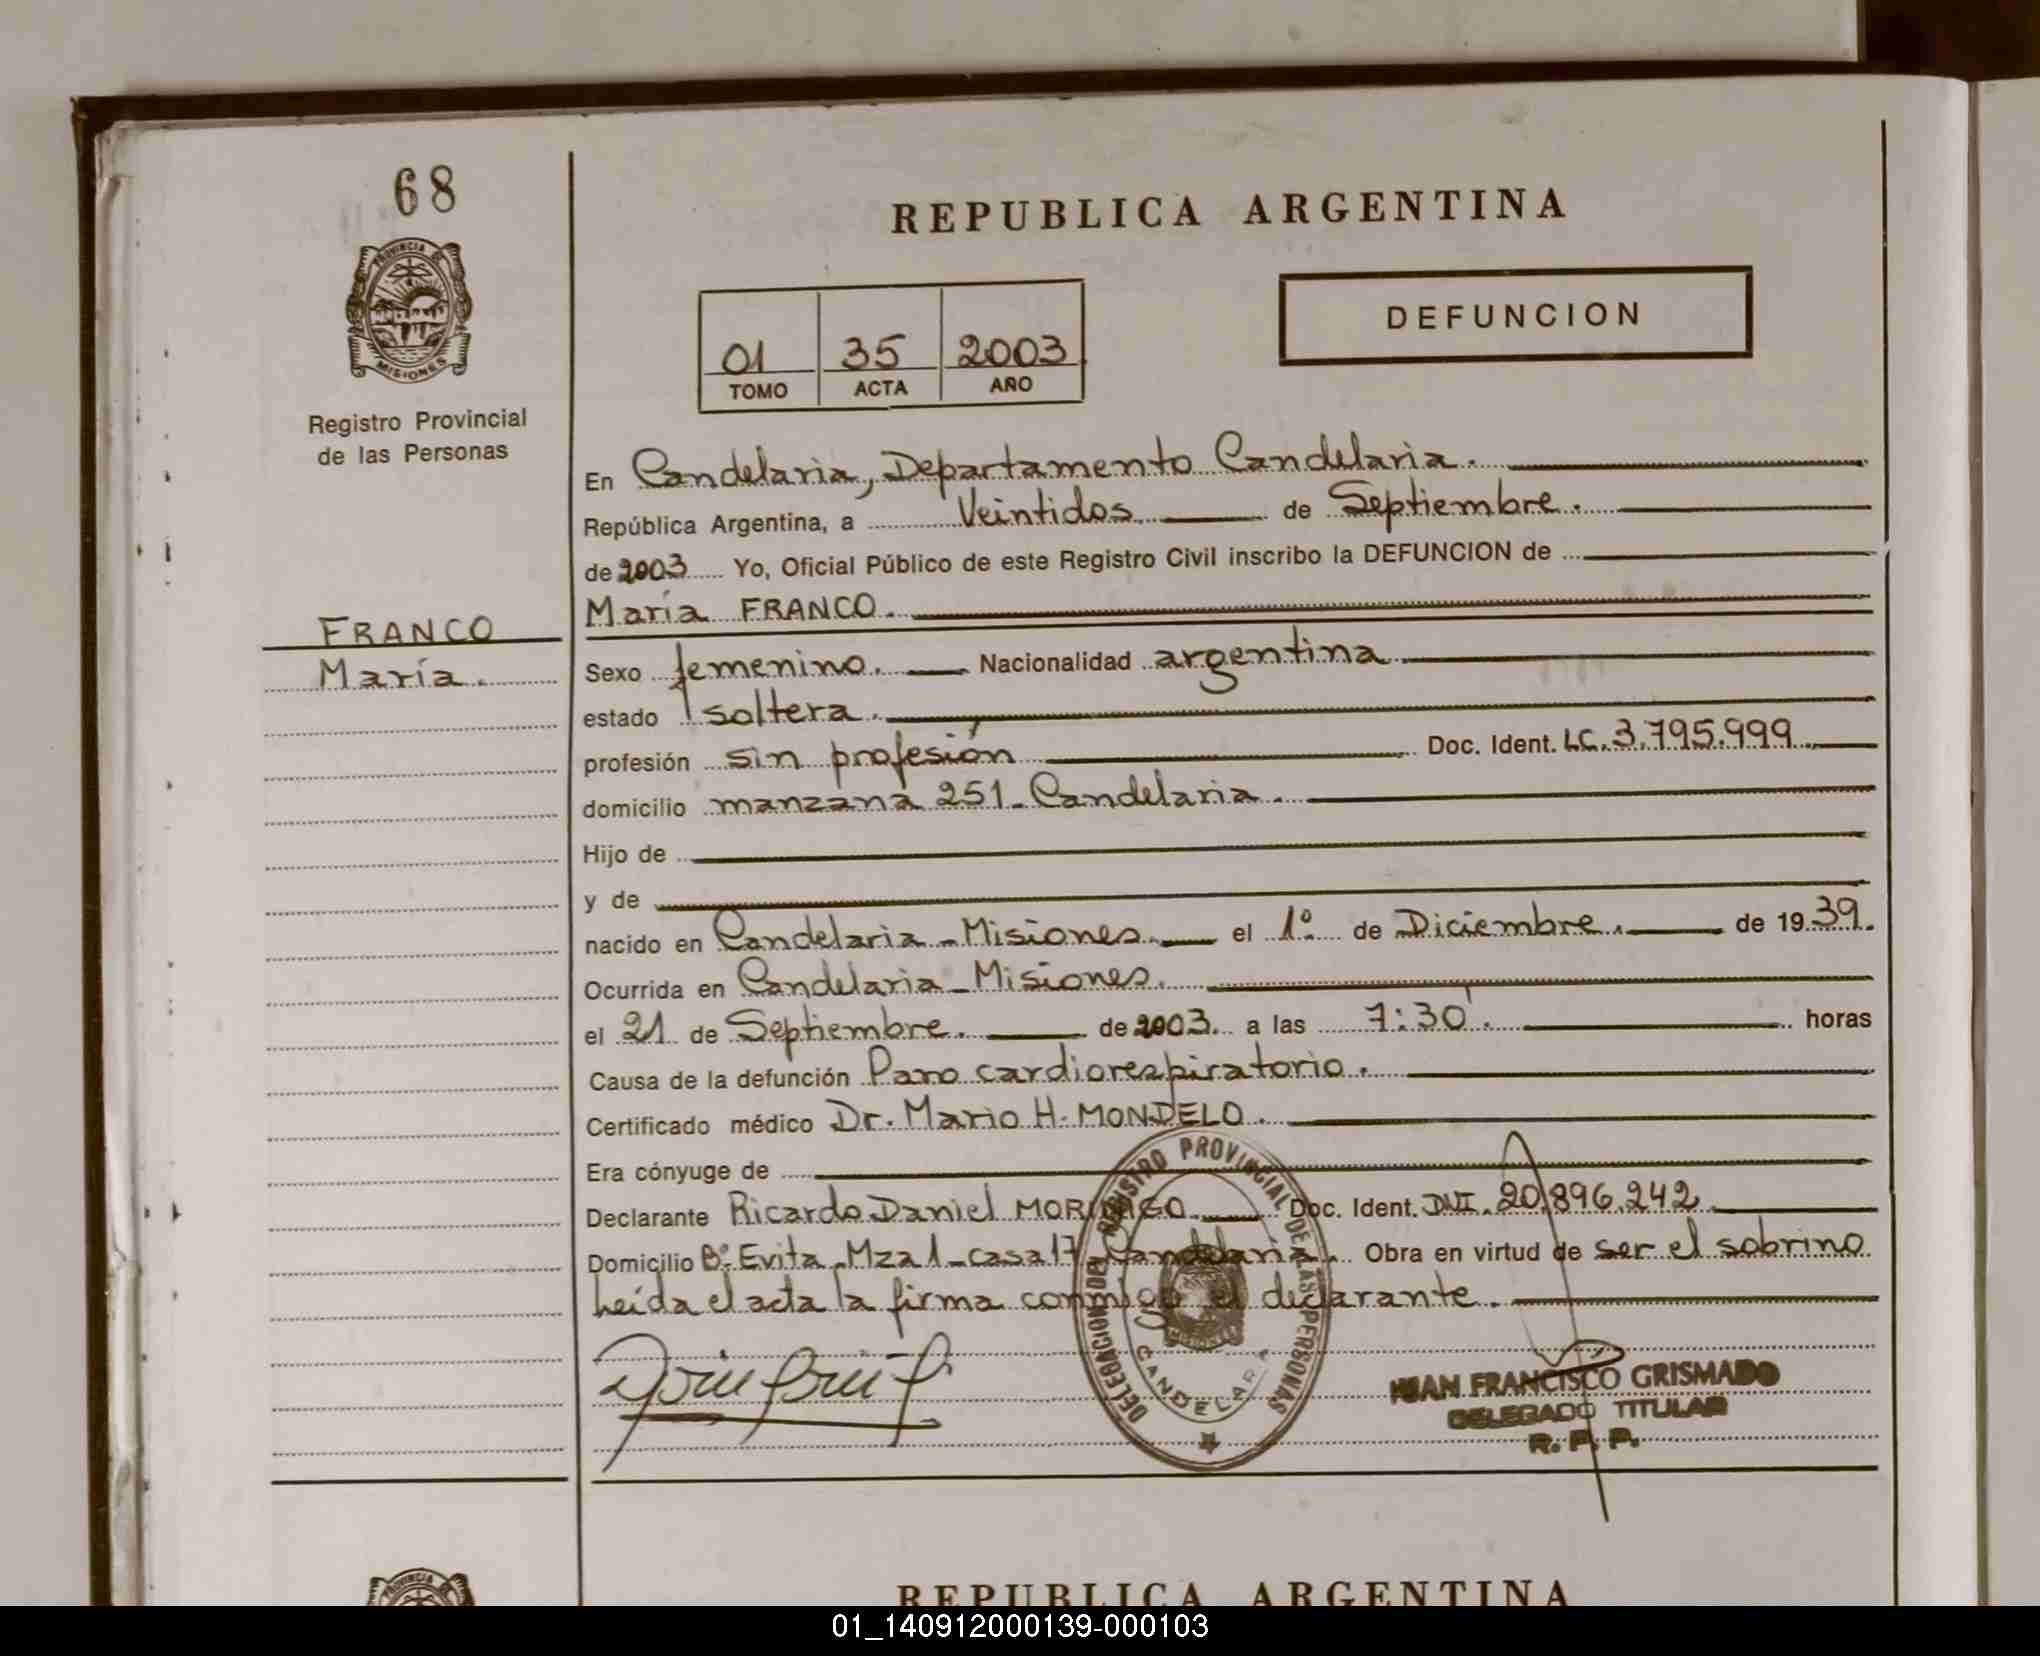 68
PROVINCIA DE
MISIONES
Registro Provincial
de las Personas
FRANCO
María.
REPUBLICA ARGENTINA
01 35 2003
TOMO ACTA AÑO
DEFUNCION
En Candelaria, Departamento Candelaria.
República Argentina, a Veintidos de Septiembre.
de 2003 Yo, Oficial Público de este Registro Civil inscribo la DEFUNCION de
María FRANCO.
Sexo femenino. Nacionalidad argentina
estado soltera.
profesión sin profesión Doc. Ident. LC. 3.795.999
domicilio manzana 251 - Candelaria.
Hijo de
y de
nacido en Candelaria - Misiones. el 1º de Diciembre. de 1939.
Ocurrida en Candelaria - Misiones.
el 21 de Septiembre. de 2003. a las 7:30'. horas
Causa de la defunción Paro cardiorespiratorio.
Certificado médico Dr. Mario H. MONDELO.
Era cónyuge de
Declarante Ricardo Daniel MORINIGO Doc. Ident. DNI. 20.896.242
Domicilio Bº Evita - Mza 1 - casa 17 Candelaria. Obra en virtud de ser el sobrino
leída el acta la firma conmigo el declarante.
DELEGACION DEL REGISTRO PROVINCIAL DE LAS PERSONAS
CANDELARIA
JUAN FRANCISCO GRISMADO
DELEGADO TITULAR
R. P. P.
PROVINCIA DE
REPUBLICA ARGENTINA
01_140912000139-000103